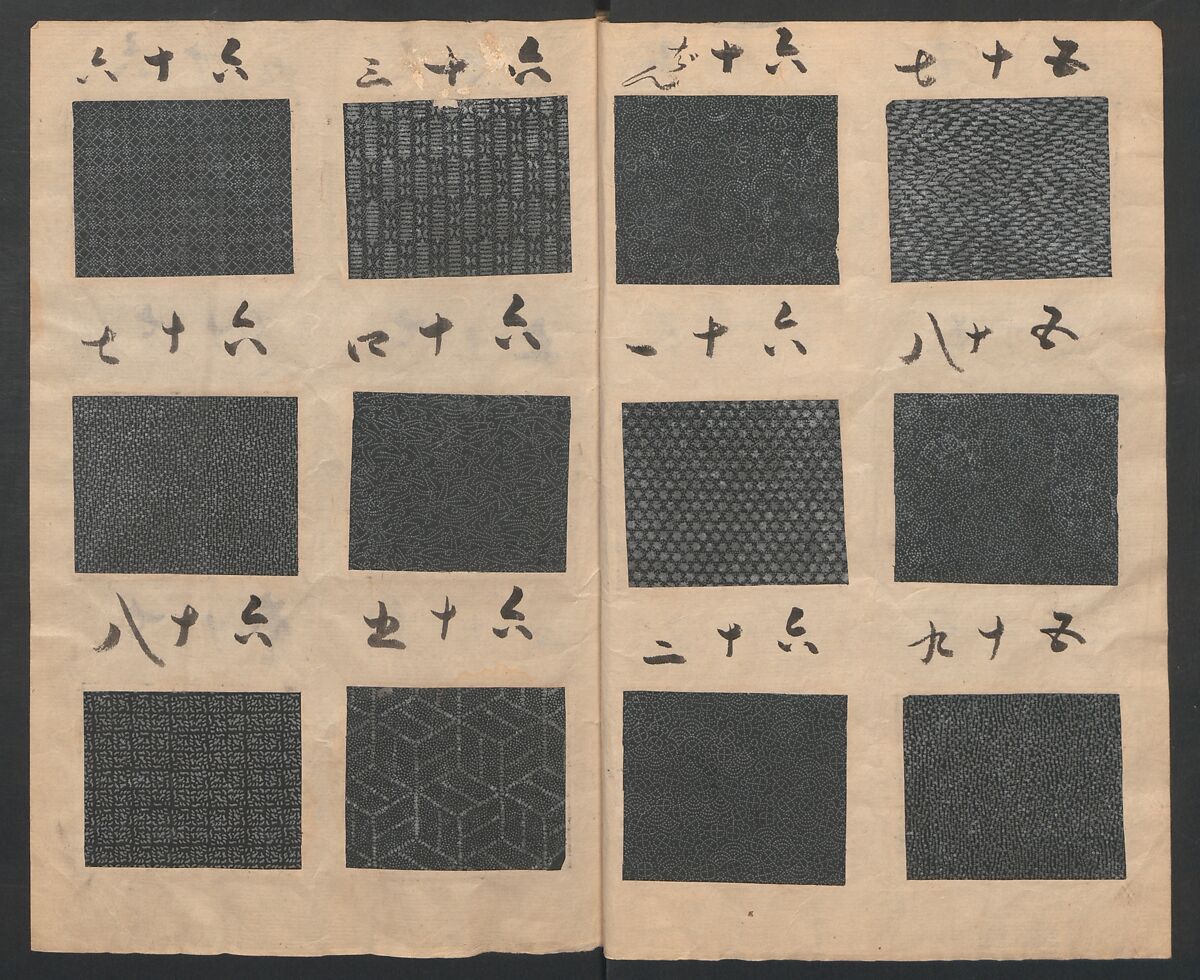 五十七
五十八
五十九
六十ばん
六十一
六十二
六十三
六十四
六十五
六十六
六十七
六十八